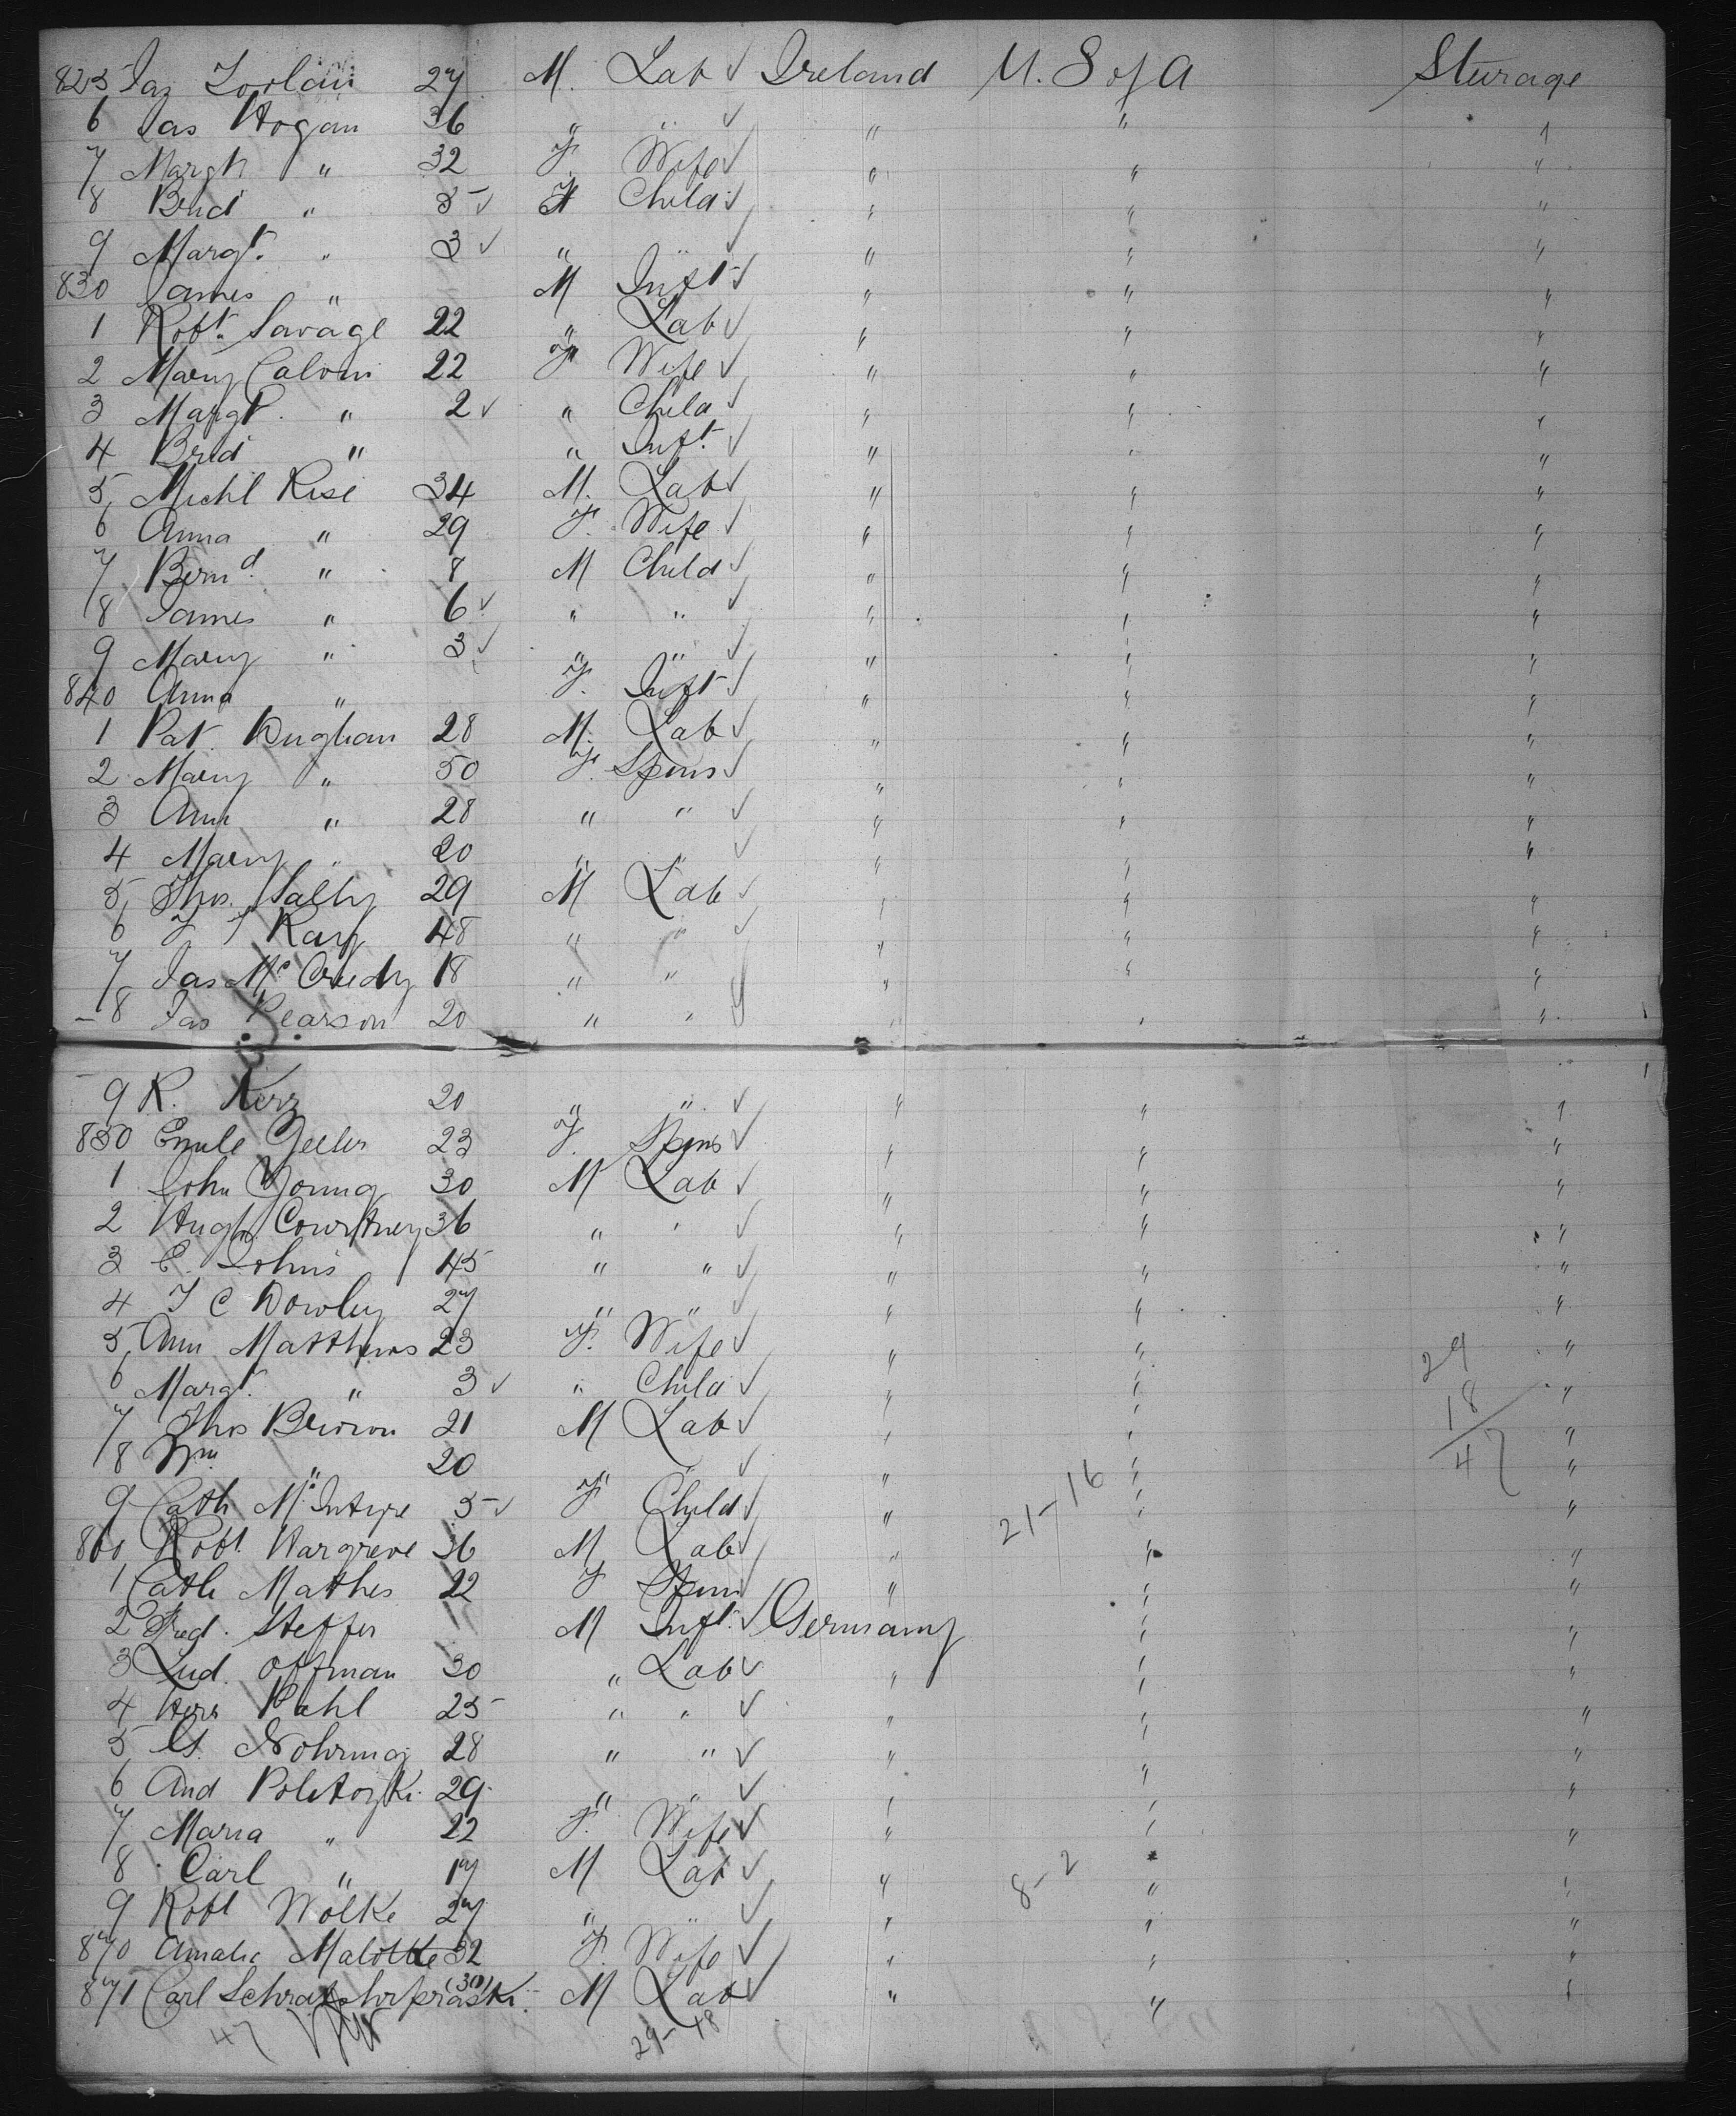 825 Jas 27 M. Lab ✓ Ireland U. S of A Sturage
6 Jas Hogan 36 " " ✓ " " "
7 Margt " 32 F. Wife ✓ " " "
8 Brid " 5 ✓ F Child ✓ " " "
9 Margt. " 3 ✓ " " ✓ " " "
830 James " M Inft ✓ " " "
1 Robt. Savage 22 " Lab ✓ " " "
2 Mary Calvin 22 F Wife ✓ " " "
3 Margt. " 2 ✓ " Child ✓ " " "
4 Brid " " Inft. ✓ " " "
5 Michl Rise 34 M. Lab ✓ " " "
6 Anna " 29 F. Wife ✓ " " "
7 Bernd. " 8 M Child ✓ " " "
8 James " 6 ✓ " " ✓ " " "
9 Mary " 3 ✓ " " ✓ " " "
840 Anna " F. Inft ✓ " " "
1 Pat. Dughan 28 M. Lab ✓ " " "
2 Mary " 50 F. Spins ✓ " " "
3 Ann " 28 " " ✓ " " "
4 Mary " 20 " " ✓ " " "
5 Thos. 29 M Lab ✓ " " "
6 Kay 48 " " ✓ " " "
7 Jas Mc 18 " " ✓ " " "
8 Jas Pearson 20 " " ✓ " " "
9 R. Kerr 20 " " ✓ " " "
850 Emile 23 F. Spins ✓ " " "
1 John Young 30 M Lab ✓ " " "
2 Hugh Courtney 36 " " ✓ " " "
3 E. Johns 45 " " ✓ " " "
4 J C Dowley 27 " " ✓ " " "
5 Ann Matthews 23 F. Wife ✓ " " "
6 Margt. " 3 ✓ " Child ✓ " " "
7 Thos Brown 21 M Lab ✓ " " "
8 Wm. " 20 " " ✓ " " "
9 Cath McIntyre 5 ✓ F Child ✓ " " "
860 Robt. Hargreve 36 M Lab ✓ " " "
1 Cath Mathes 22 F Spins ✓ " " "
2 Fred. Steffen M Inft. ✓ Germany " "
3 Lud. Offman 30 " Lab ✓ " " "
4 Herr Pahl 25 " " ✓ " " "
5 G. Nohring 28 " " ✓ " " "
6 And Politozki 29 " " ✓ " " "
7 Maria " 22 F. Wife ✓ " " "
8 Carl " 17 M Lab ✓ " " "
9 Robt Wolke 27 " " ✓ " " "
870 Amalie Malotke 32 F. Wife ✓ " " "
871 Carl (30) M Lab ✓ " " "
29
18
47
21-16
8-2
47
29-18